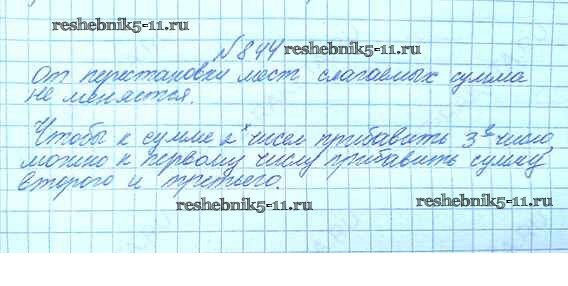 reshebnik5-11.ru
№844
reshebnik5-11.ru
От перестановки мест слагаемых сумма
не меняется.
Чтобы к сумме 2х чисел прибавить 3е число,
можно к первому числу прибавить сумму
второго и третьего.
reshebnik5-11.ru
reshebnik5-11.ru